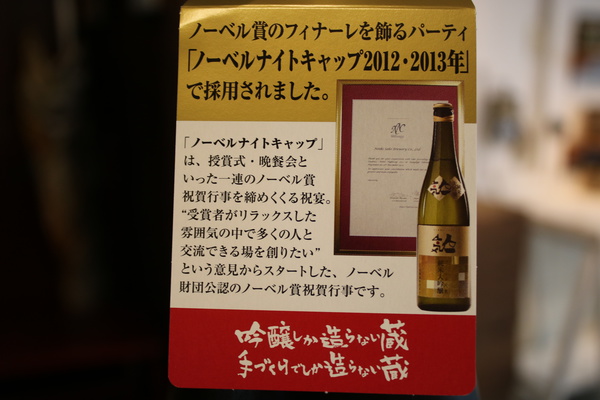 ノーベル賞のフィナーレを飾るパーティ
「ノーベルナイトキャップ2012・2013年」
で採用されました。
「ノーベルナイトキャップ」
は、授賞式・晩餐会と
いった一連のノーベル賞
祝賀行事を締めくくる祝宴。
“受賞者がリラックスした
雰囲気の中で多くの人と
交流できる場を創りたい”
という意見からスタートした、ノーベル
財団公認のノーベル賞祝賀行事です。
吟醸しか造らない蔵
手づくりでしか造らない蔵